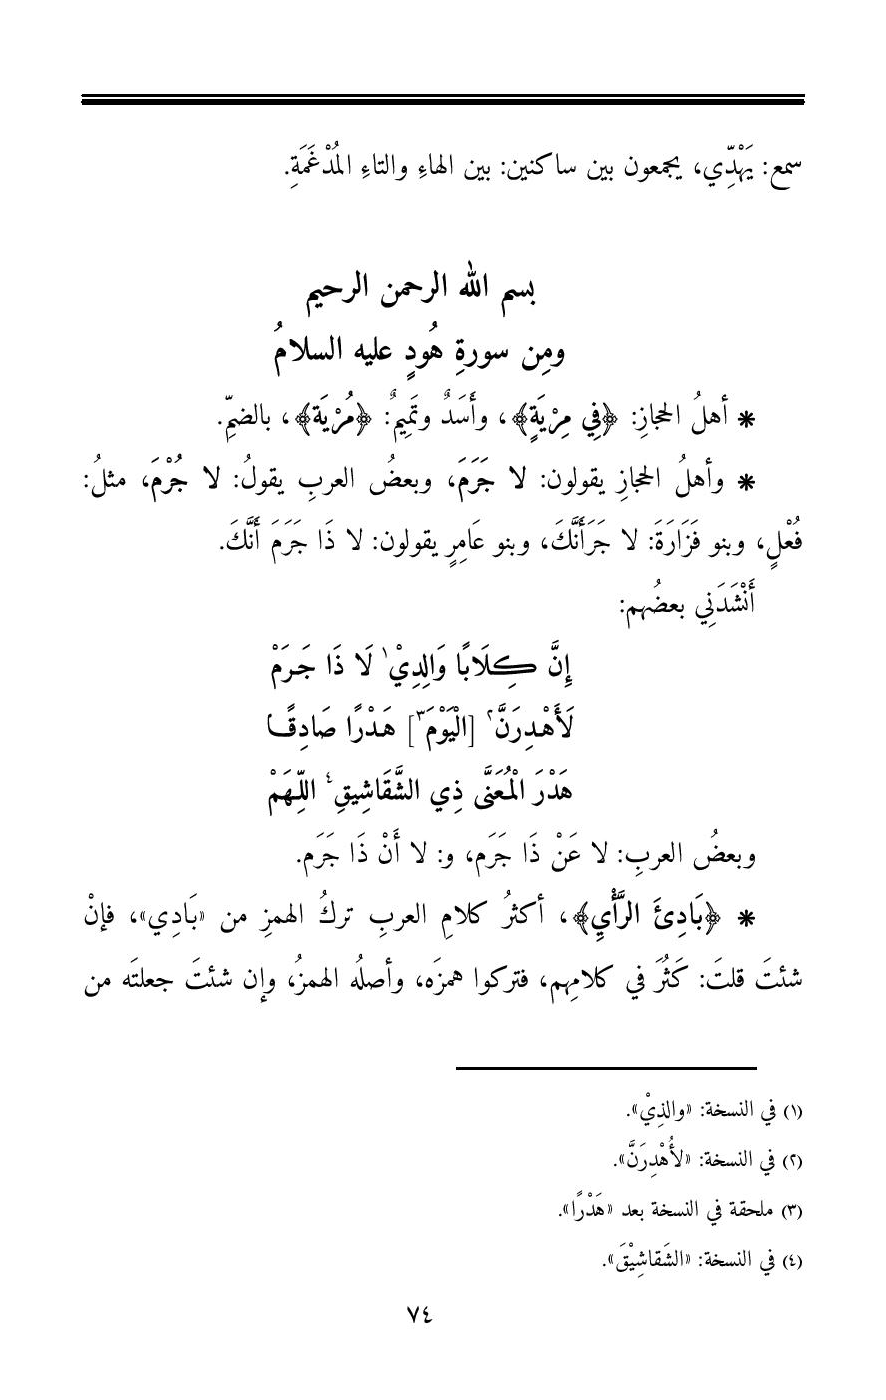 سمع: يَهْدِّي، يجمعون بين ساكنين: بين الهاءِ والتاءِ المُدْغَمَةِ.
بسم الله الرحمن الرحيم
ومِن سورةِ هُودٍ عليه السلامُ
* أهلُ الحجازِ: ﴿فِي مِرْيَةٍ﴾، وأَسَدٌ وتَمِيمٌ: ﴿مُرْيَة﴾، بالضمِّ.
* وأهلُ الحجازِ يقولون: لا جَرَمَ، وبعضُ العربِ يقولُ: لا جُرْمَ، مثلُ:
فُعْلٍ، وبنو فَزَارَةَ: لا جَرَأَنَّكَ، وبنو عَامِرٍ يقولون: لا ذَا جَرَمَ أَنَّكَ.
أَنْشَدَنِي بعضُهم:
إِنَّ كِلَابًا وَالِدِيْ١ لَا ذَا جَرَمْ
لَأَهْدِرَنَّ٢ [الْيَوْمَ٣] هَدْرًا صَادِقًا
هَدْرَ الْمُعَنَّى ذِي الشَّقَاشِيقِ٤ اللِّهَمْ
وبعضُ العربِ: لا عَنْ ذَا جَرَم، و: لا أَنْ ذَا جَرَم.
* ﴿بَادِئَ الرَّأْيِ﴾، أكثرُ كلامِ العربِ تركُ الهمزِ من «بَادِي»، فإنْ
شئتَ قلتَ: كَثُرَ في كلامِهم، فتركوا همزَه، وأصلُه الهمزُ، وإن شئتَ جعلتَه من
(١) في النسخة: «والذِيْ».
(٢) في النسخة: «لأُهْدِرَنَّ».
(٣) ملحقة في النسخة بعد «هَدْرًا».
(٤) في النسخة: «الشَقاشِيْقَ».
٧٤